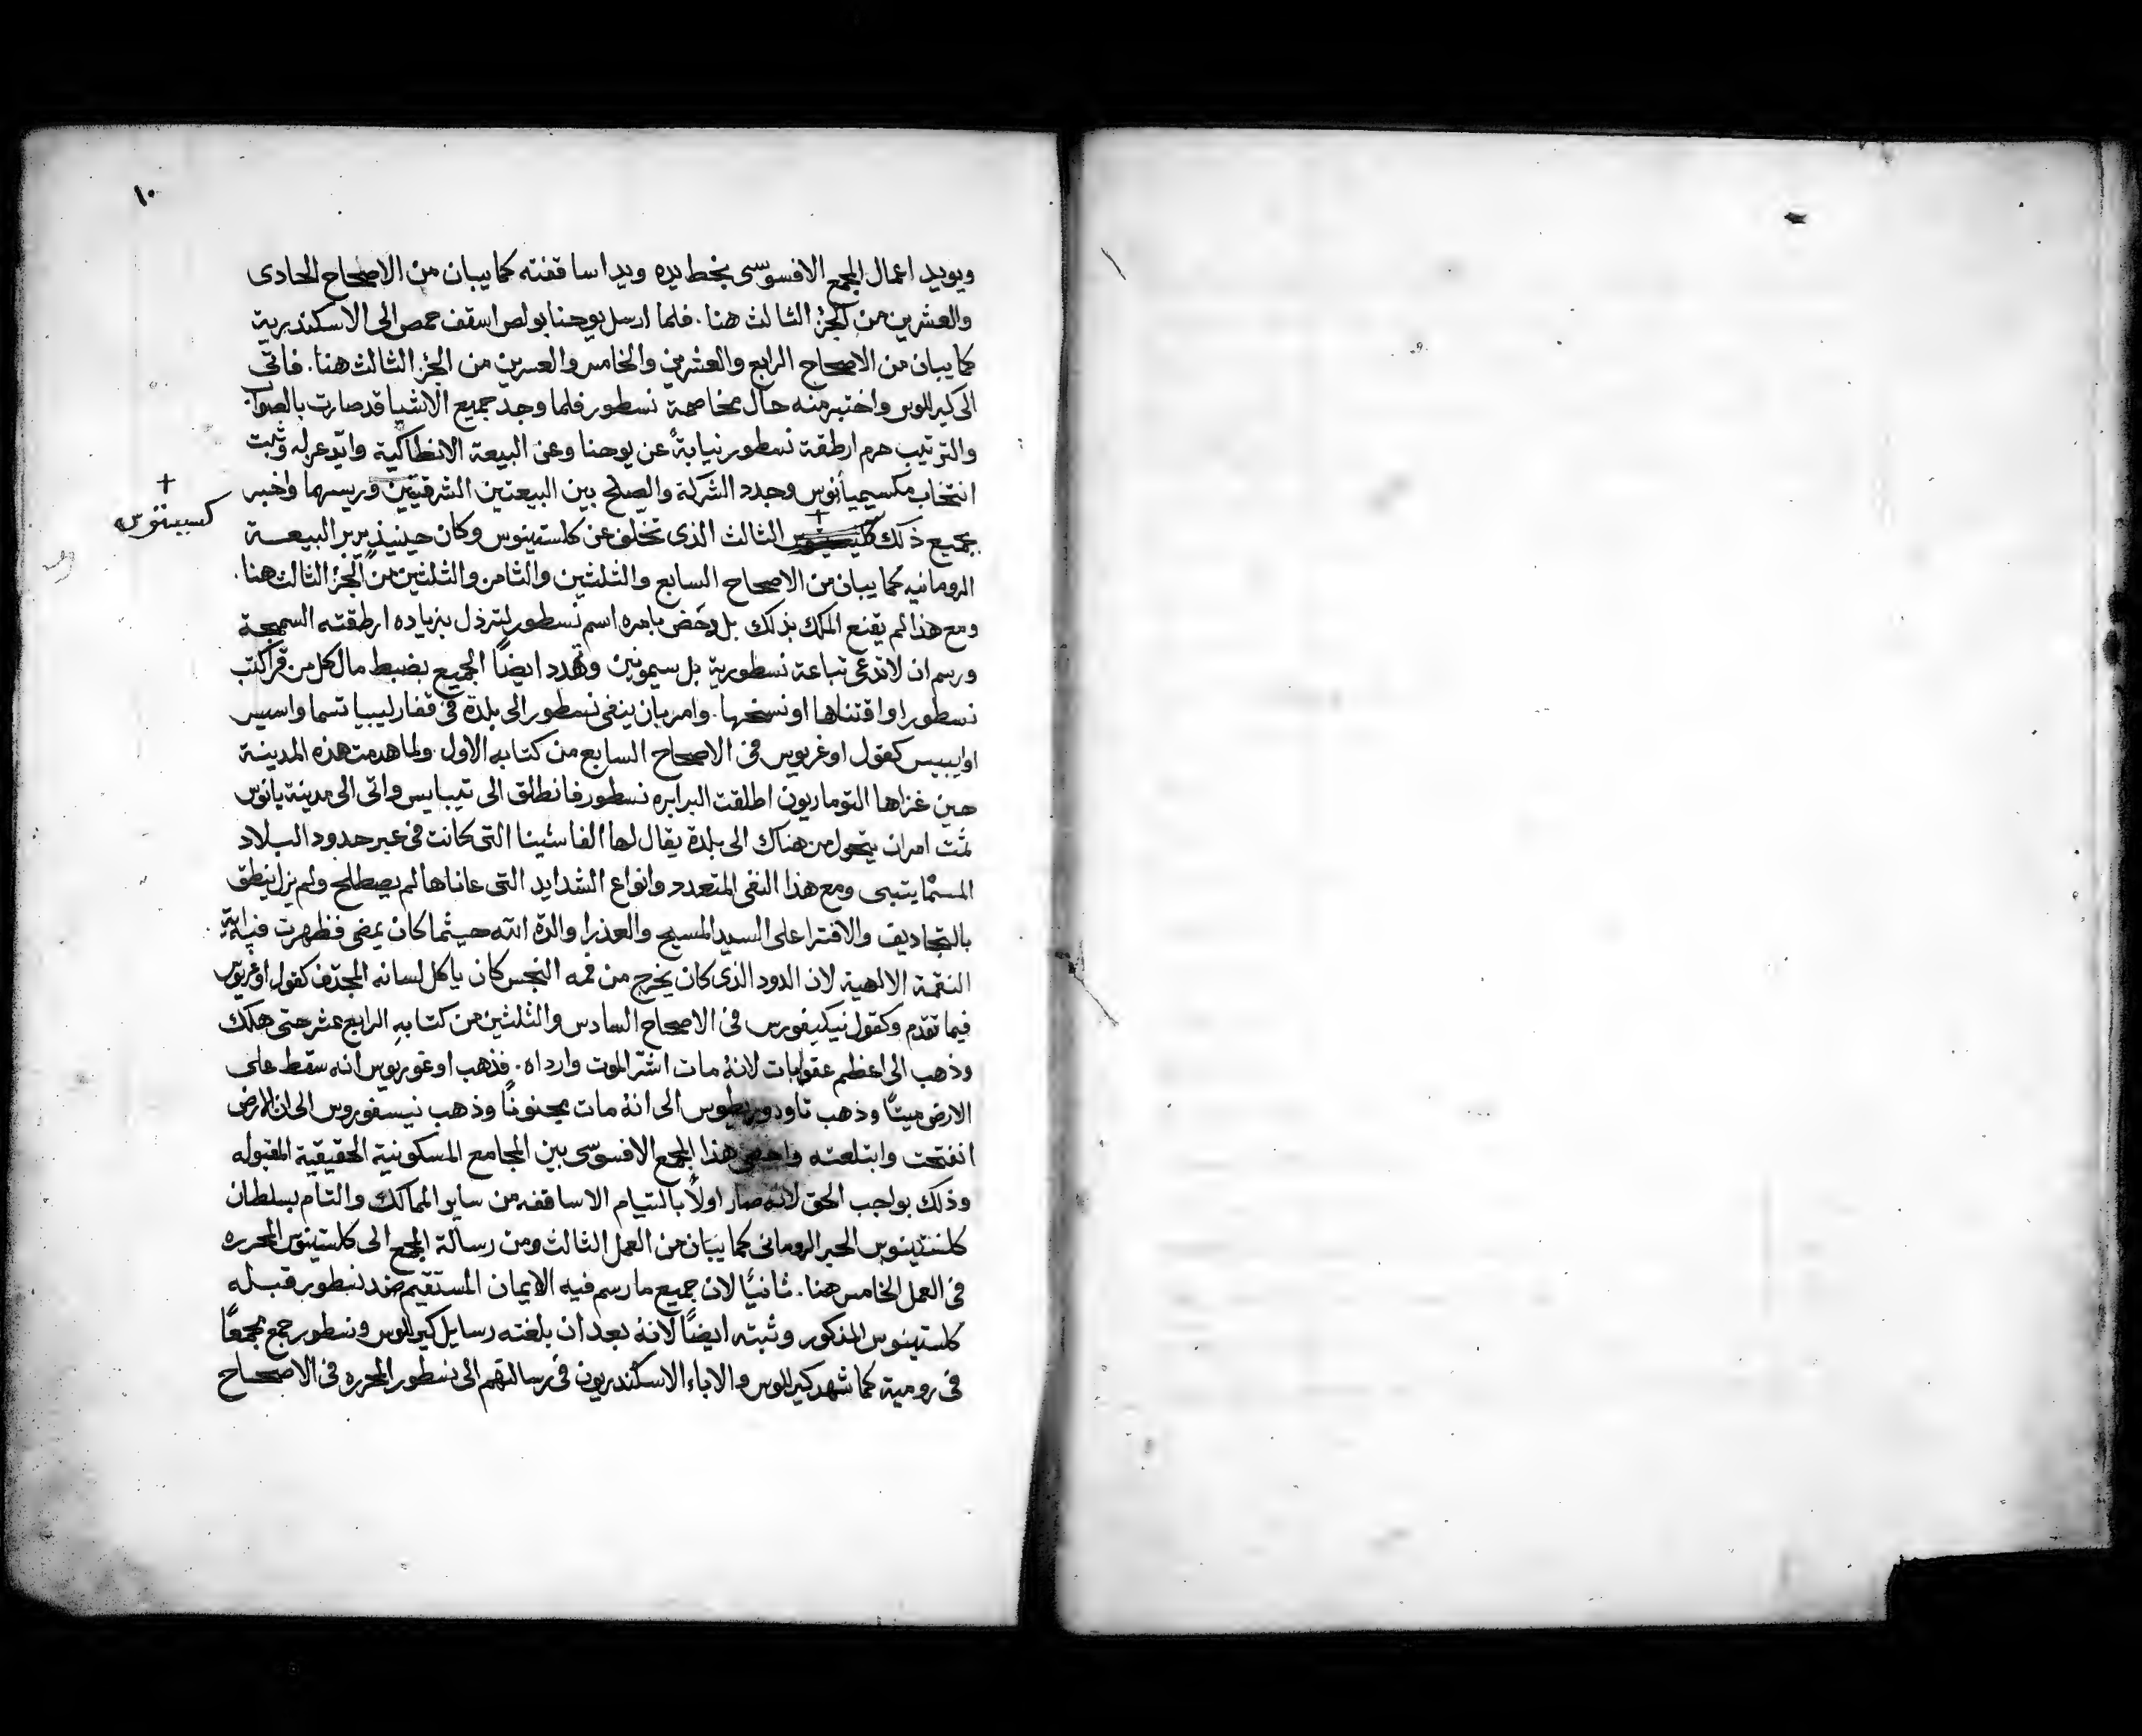 ١٠
ويويد اعمال المجمع الافسوسى بخط يده ويد اساقفته كما يبان من الاصحاح الحادى
والعشرين من الجز الثالث هنا. فلما ارسل يوحنا بولص اسقف حمص الى الاسكندرية
كما يبان من الاصحاح الرابع والعشرين والخامس والعسرين من الجز الثالث هنا. فاتى
الى كيرللوس واختبر منه حال مخاصمة نسطور فلما وجد جميع الاشيا قد صارت بالصواب
والترتيب حرم ارطقة نسطور نيابةً عن يوحنا وعن البيعة الانطاكية وايد عزله وثبت
انتخاب مكسيميانوس وجدد الشركة والصلح بين البيعتين الشرقيتين وريسهما واخبر
بجميع ذلك الثالث الذى تخلف عن كلستينوس وكان حينيذٍ يدبر البيعـة
كسيستوس
الرومانيه كما يبان من الاصحاح السابع والثلثين والثامن والثلثين من الجز الثالث هنا.
ومع هذا لم يقنع الملك بذلك بل دحض بامره اسم نسطور لترذل بزياده ارطقته السمجة
ورسم ان لا تدعى تباعة نسطورية بل سيمونين وتهدد ايضاً الجميع بضبط مال كل من قرا كتب
نسطور او اقتناها او نسخها. وامر بان ينفى نسطور الى بلدة فى قفار ليبيا تسما واسيس
اوايبيس كقول اوغريوس فى الاصحاح السابع من كتابه الاول. ولما هدمت هذه المدينة
حين غزاها التوماريون اطلقت البرابره نسطور فانطلق الى تيبايس واتى الى مدينة بانوس
ثمت امر ان يتحول من هناك الى بلدة يقال لها الفاسنينا التى كانت فى عبر حدود البلاد
المسمّا يتبى ومع هذا النفى المتعدد وانواع الشدايد التى عاناها لم يصطلح ولم يزل ينطق
بالتجاديف والافترا على السيد المسيح والعذرا والدة الله حيثما كان يمضى فظهرت فيه اية
النقمة الالهية لان الدود الذى كان يخرج من فمه النجس كان ياكل لسانه المجدّف كقول اوغريوس
فيما تقدّم وكقول نيكيفورس فى الاصحاح السادس والثلثين من كتابهِ الرابع عشر حتى هلك
وذهب الى اعظم عقوبات لانهُ مات اشرّ الموت وارداه. فذهب اوغوريوس انه سقط على
الارض ميتاً وذهب تاودوريطوس الى انهُ مات مجنوناً وذهب نيسفوروس الى ان الارض
انفتحت وابتلعته واحصى هذا المجمع الافسوسى بين المجامع المسكونية الحقيقية المقبوله
وذلك بواجب الحق لانه صار اولاً بالتيام الاساقفه من ساير الممالك والتام بسلطان
كلستينوس الحبر الرومانى كما يبان من العمل الثالث ومن رسالة المجمع الى كلستينوس المحرره
فى العمل الخامس هنا. ثانياً لان جميع ما رسم فيه الايمان المستقيم ضد نسطور قبـله
كلستينوس المذكور وثبته ايضاً لانهُ بعد ان بلغته رسايل كيرللوس ونسطور جمع مجمعاً
فى رومية كما شهد كيرللوس والاباء الاسكندريون فى رسالتهم الى نسطور المحرره فى الاصحـاح